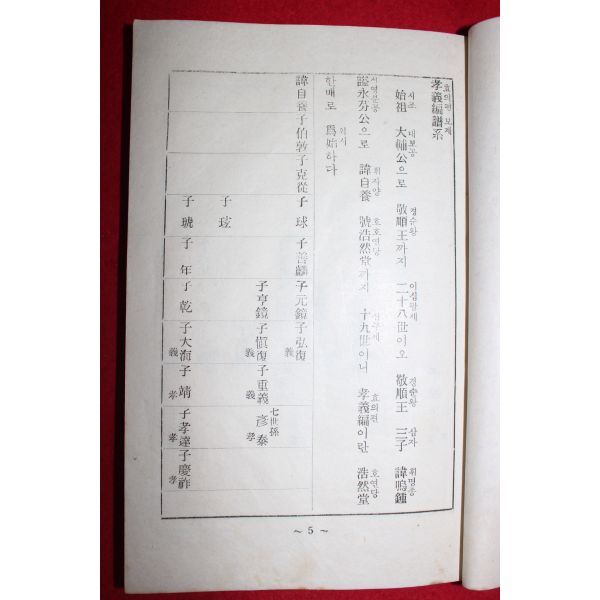 효의편 보계
孝義編譜系
시조 대보공 경순왕 이십팔세 경순왕 삼자 휘명종
始祖 大輔公으로 敬順王까지 二十八世이오 敬順王 三子 諱鳴鍾
시영분공 휘자양 호호연당 십구세 효의편 호연당
諡永芬公으로 諱自養 號浩然堂까지 十九世이니 孝義編이란 浩然堂
위시
한배로 爲始하다
諱自養 子伯敦 子克從 子球 子善麟 子元鏡 子弘復 義
子亨鏡 子愼復 義 子重義 義 七世孫 彦泰 孝
子玹
子琥 子年 子乾 子大海 義 子靖 孝 子孝達 孝 子慶祚 孝
~ 5 ~